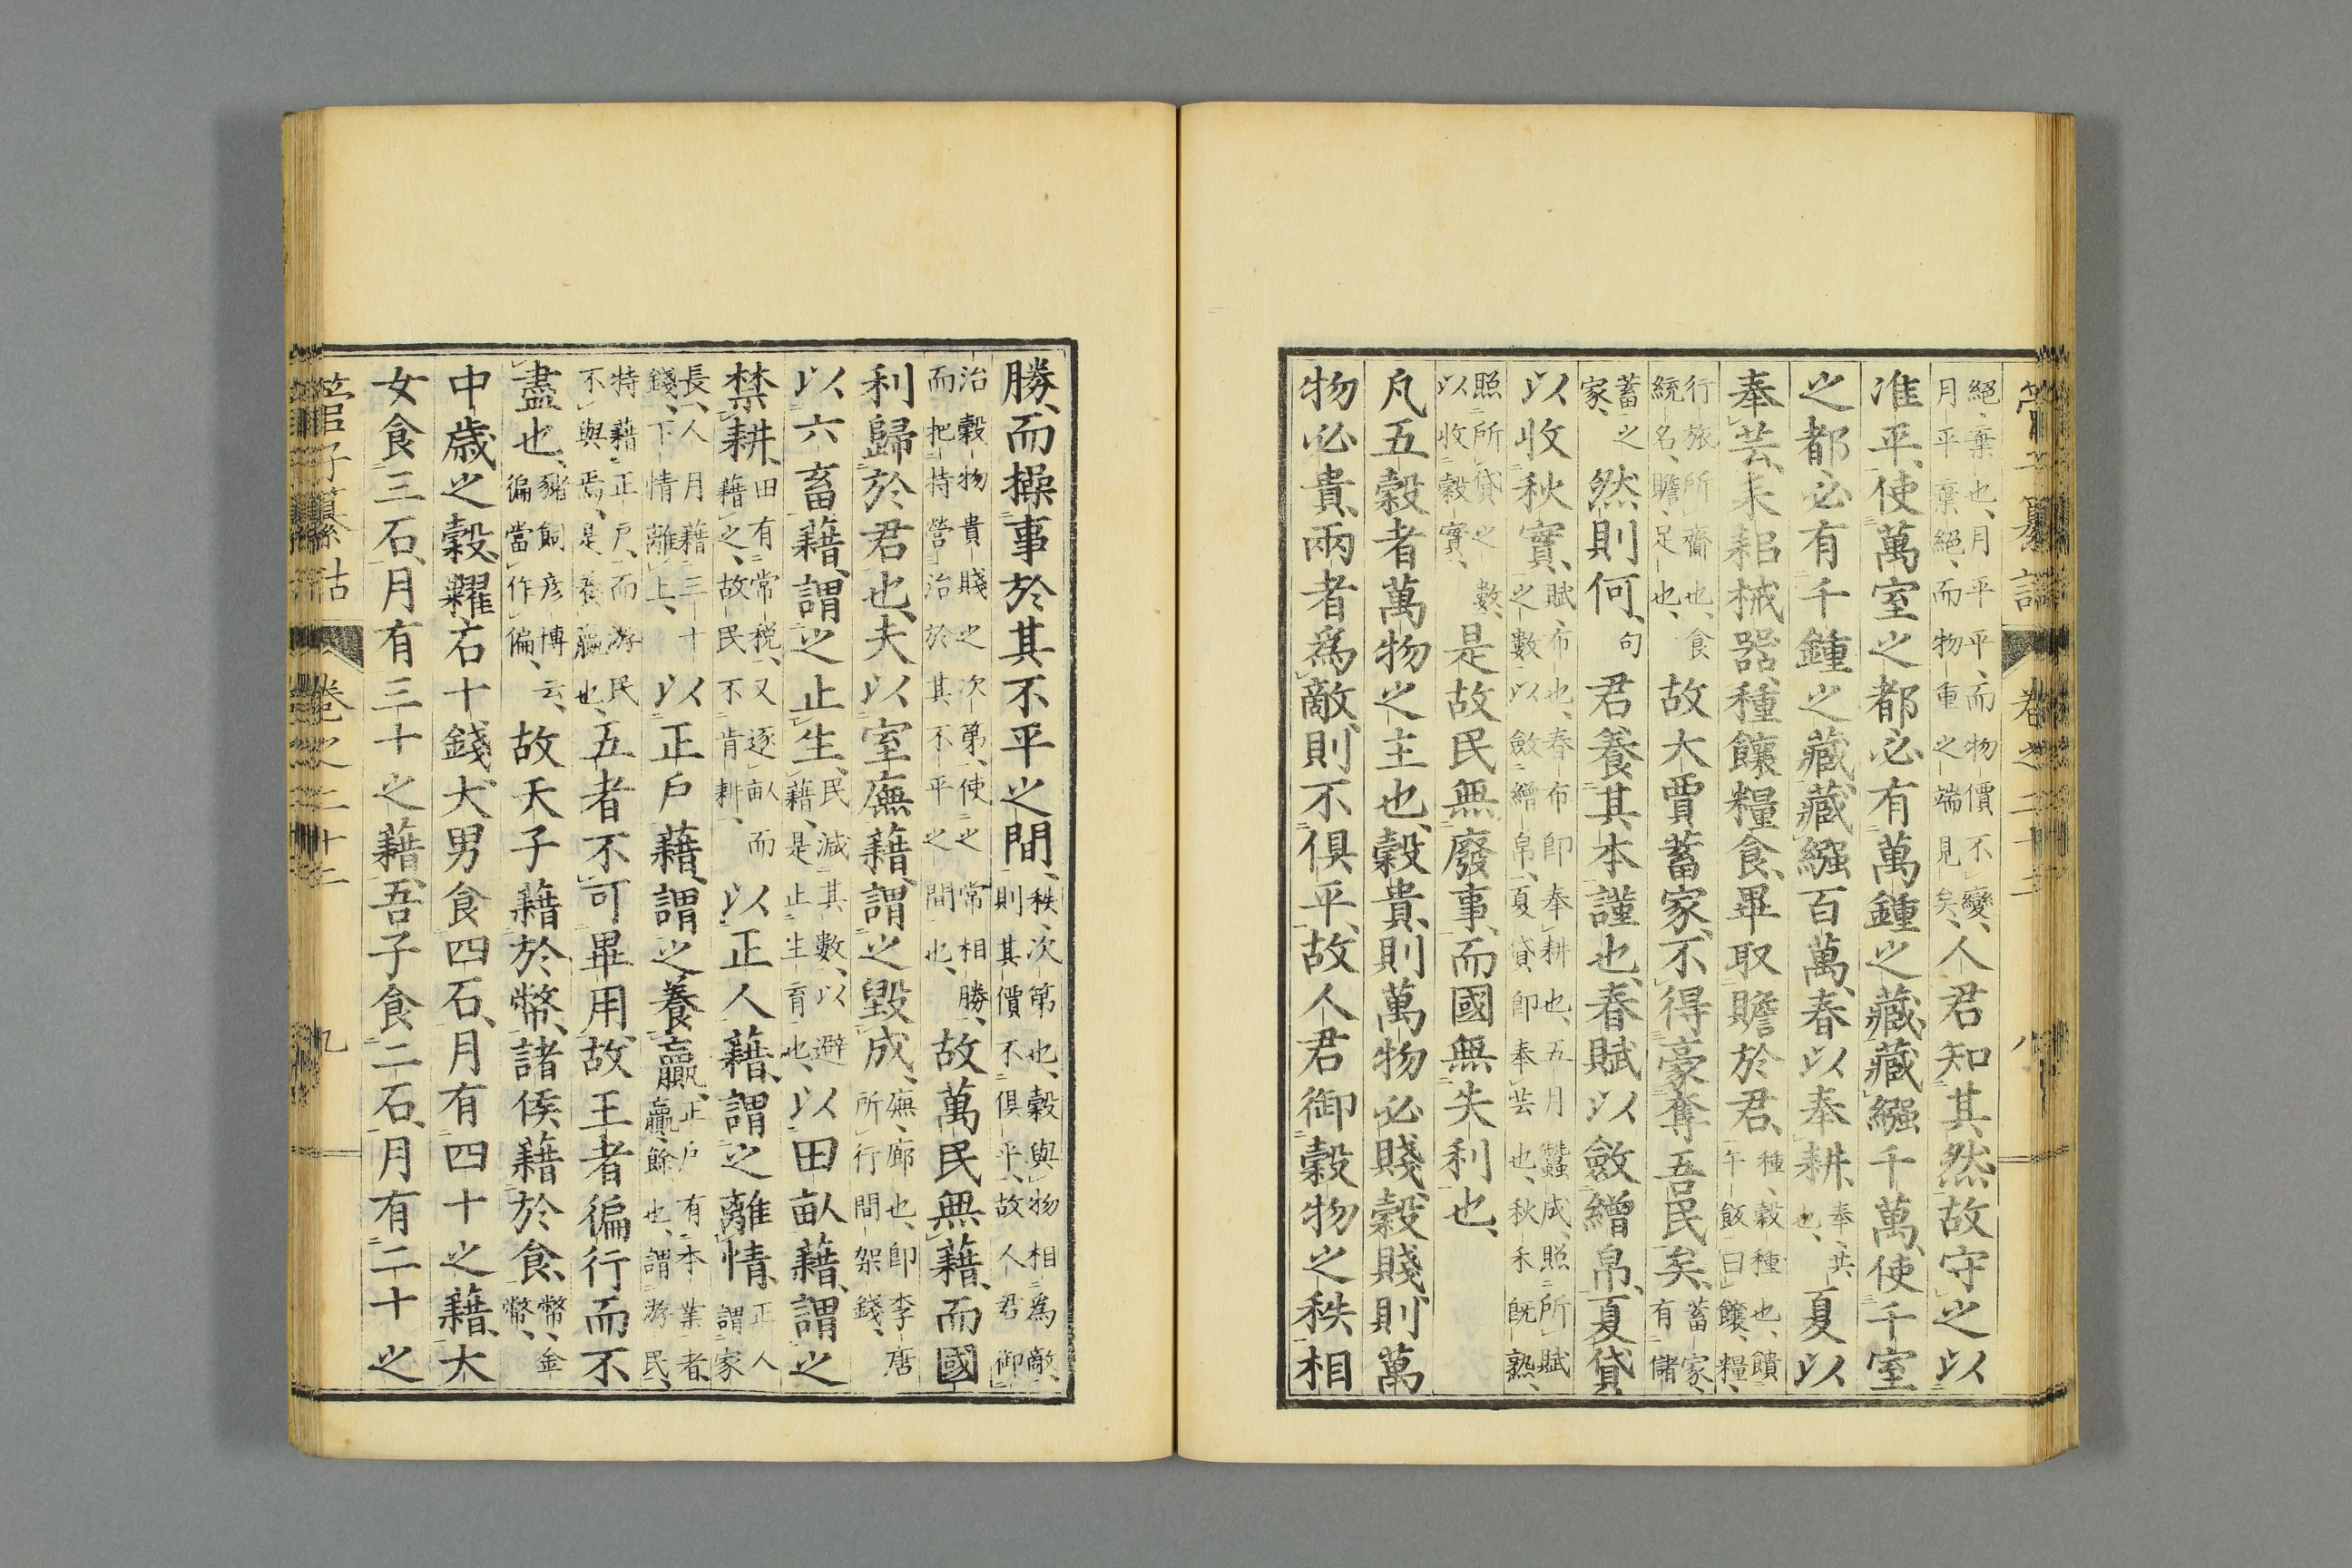 管子纂詁 卷之二十二 八
絕、棄也、月平平、而物價不變、月平棄絕、而物重之端見矣、人君知其然、故守之以
准平、使萬室之都必有萬鍾之藏、藏繦千萬、使千室
之都、必有千鍾之藏、藏繦百萬、春以奉耕、奉、共也、夏以
奉芸、耒耜械器、種饟糧食、畢取贍於君、種、穀種也、饋午飯曰饟、糧、
行旅所齎也、食統名、贍、足也、故大賈蓄家、不得豪奪吾民矣、蓄家、有儲
蓄之家、然則何、句君養其本謹也、春賦以斂繒帛、夏貸
以收秋實、賦、布也、春布即奉耕也、五月蠶成、照所賦之數以斂繒帛、夏貸即奉芸也、秋禾既熟、
照所貸之數、以收穀實、是故民無廢事、而國無失利也、
凡五穀者萬物之主也、穀貴、則萬物必賤、穀賤、則萬
物必貴、兩者爲敵、則不俱平、故人君御穀物之秩相
勝、而操事於其不平之間、秩、次第也、穀與物相爲敵、則其價不俱平、故人君御
治穀物貴賤之次第、使之常相勝、而把持營治於其不平之間也、故萬民無藉、而國
利歸於君也、夫以室廡藉、謂之毀成、廡、廊也、即李唐所行間架錢、
以六畜藉、謂之止生、民減其數、以避藉、是止生育也、以田畝藉、謂之
禁耕、田有常稅、又逐畝而藉之、故民不肯耕、以正人藉、謂之離情、正人謂家
長、人月藉三十錢、下情離上、以正戶藉、謂之養贏、正戶有本業者、贏、餘也、謂游民、
特藉正戶、而游民不與焉、是養贏也、五者不可畢用、故王者徧行而不
盡也、豬飼彥博云、徧當作偏、故天子藉於幣、諸侯藉於食、幣、金幣、
中歲之穀、糶石十錢、大男食四石、月有四十之藉、大
女食三石、月有三十之藉、吾子食二石、月有二十之
管子纂詁 卷之二十二 九